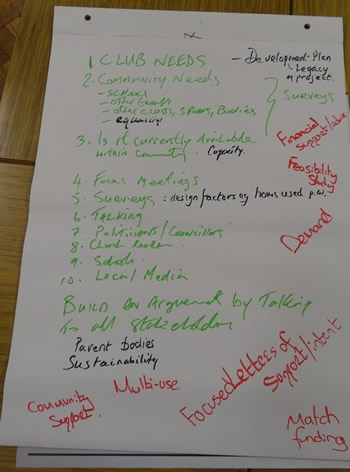 1. CLUB NEEDS
- Development Plan
Legacy
of project.
2. Community Needs
- Schools
- other Events
- other clubs, Sports, Bodies,
- equality
Surveys
3. Is it currently Available
within community. Capacity.
Financial
Support
Feasibility
Study
4. Focus Meetings
5. Surveys : design factors eg hours used p.w.
6. Talking
7. Politicians / Councillors
8. Church leaders
9. Schools
10. Local Media
Demand
Build an Argument by Talking
to all stakeholders
Parent bodies
Sustainability
Community
Support.
Multi-use
Focused Letters of
Support/intent
Match
funding